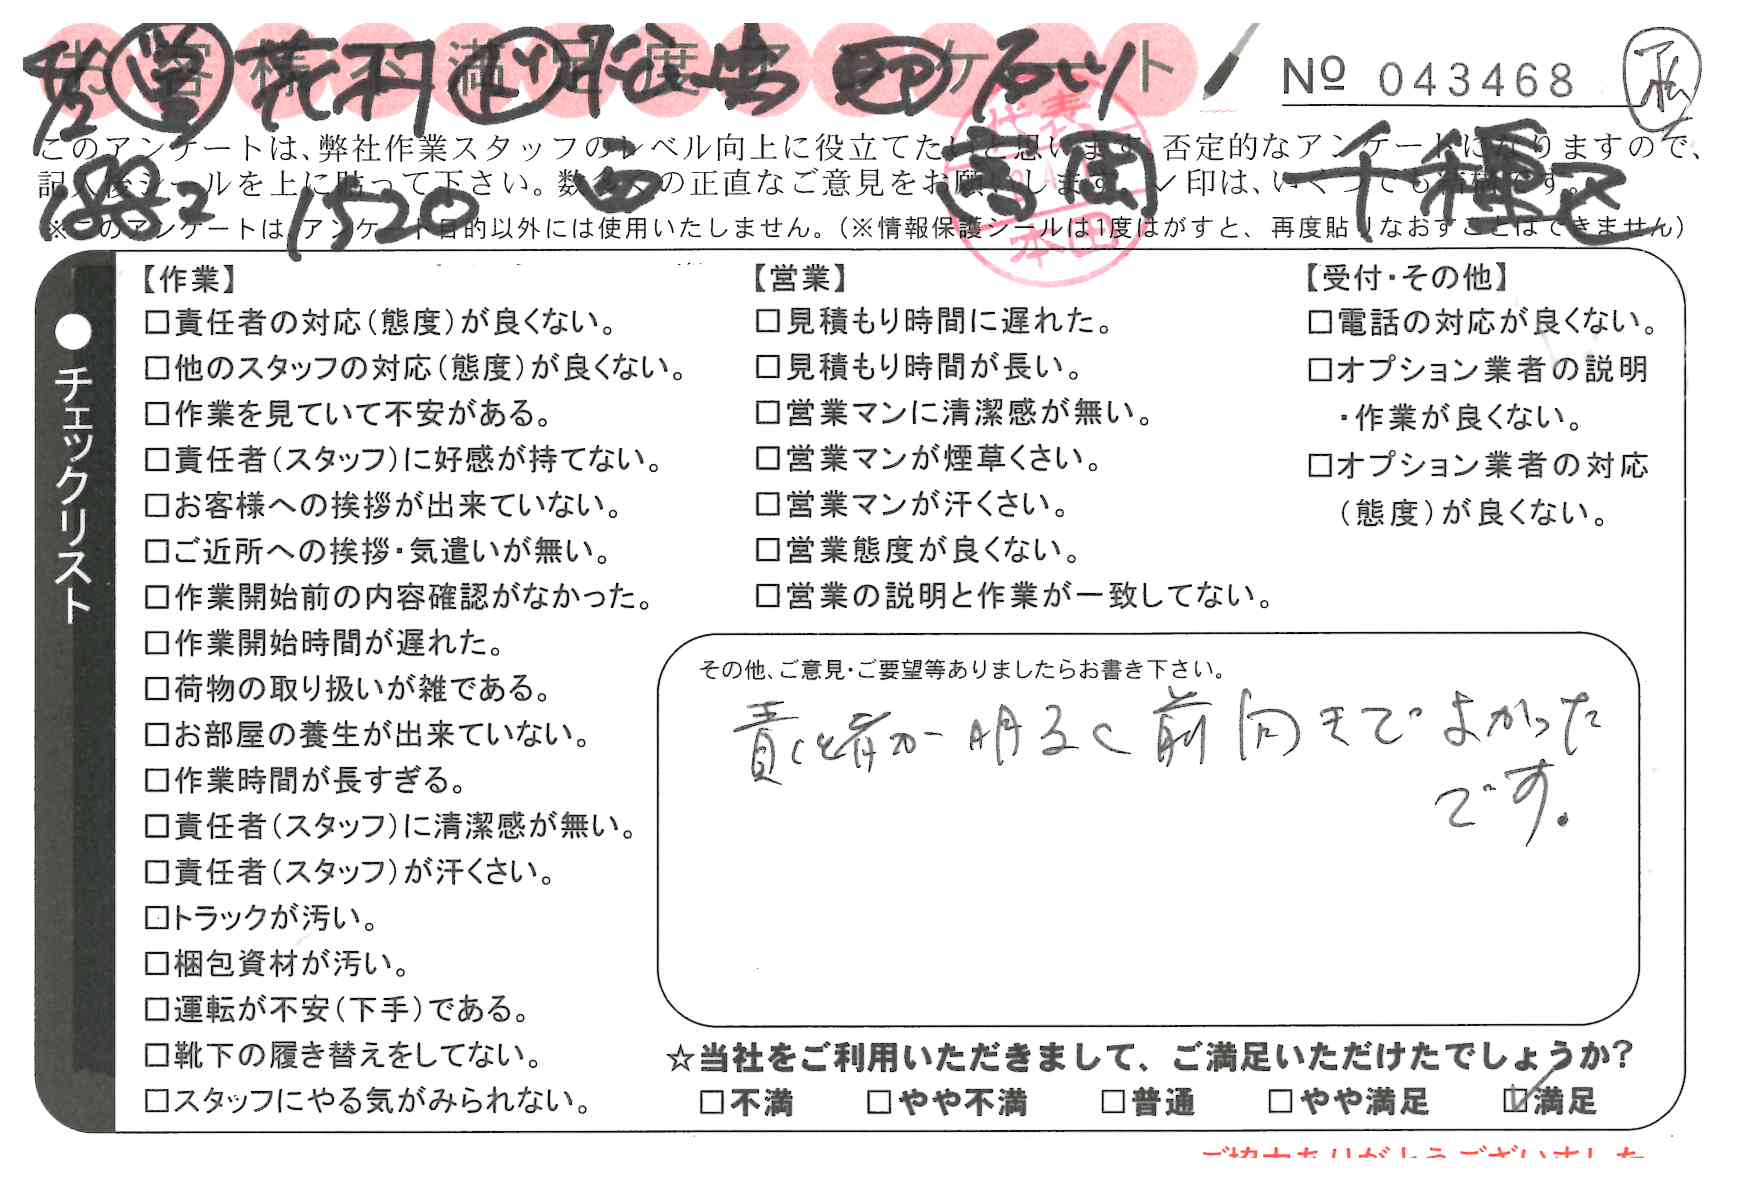 お客様不満足度アンケート
Nº 043468
このアンケートは、弊社作業スタッフのレベル向上に役立てたいと思います 否定的なアンケートになりますので、
記入後シールを上に貼って下さい。数多くの正直なご意見をお願いします ✓印は、いくつでも結構です。
※このアンケートは、アンケート目的以外には使用いたしません。（※情報保護シールは1度はがすと、再度貼りなおすことはできません）
代表
本田
吉岡
千種区
1882 1520
●チェックリスト
【作業】
□責任者の対応（態度）が良くない。
□他のスタッフの対応（態度）が良くない。
□作業を見ていて不安がある。
□責任者（スタッフ）に好感が持てない。
□お客様への挨拶が出来ていない。
□ご近所への挨拶・気遣いが無い。
□作業開始前の内容確認がなかった。
□作業開始時間が遅れた。
□荷物の取り扱いが雑である。
□お部屋の養生が出来ていない。
□作業時間が長すぎる。
□責任者（スタッフ）に清潔感が無い。
□責任者（スタッフ）が汗くさい。
□トラックが汚い。
□梱包資材が汚い。
□運転が不安（下手）である。
□靴下の履き替えをしてない。
□スタッフにやる気がみられない。
【営業】
□見積もり時間に遅れた。
□見積もり時間が長い。
□営業マンに清潔感が無い。
□営業マンが煙草くさい。
□営業マンが汗くさい。
□営業態度が良くない。
□営業の説明と作業が一致してない。
【受付・その他】
□電話の対応が良くない。
□オプション業者の説明
・作業が良くない。
□オプション業者の対応
（態度）が良くない。
その他、ご意見・ご要望等ありましたらお書き下さい。
責任者が明るく前向きでよかった
です。
☆当社をご利用いただきまして、ご満足いただけたでしょうか？
□不満 □やや不満 □普通 □やや満足 ☑満足
ご協力ありがとうございました